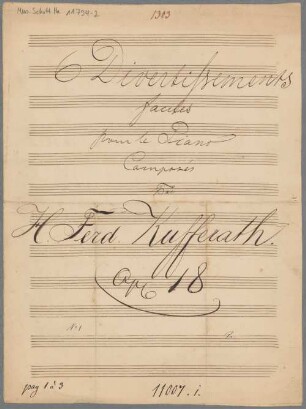 Mus. Schott Ha 11794-2
1303
6 Divertissements
faciles
pour le Piano
Composés
par
H. Ferd. Kufferath.
Op. 18
pag 1 à 3
11007. i.